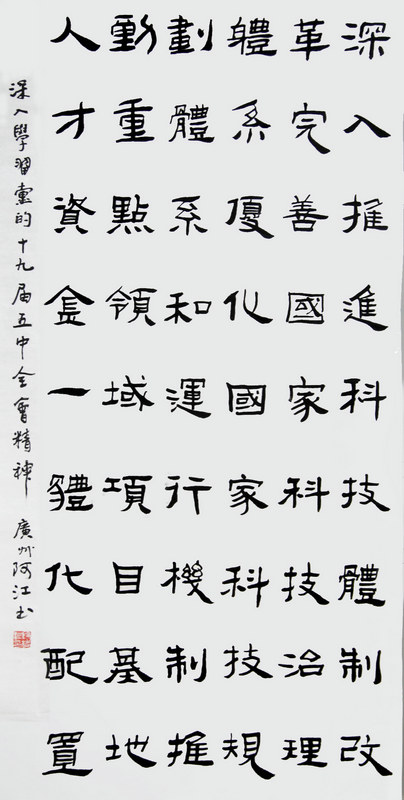 深入推進科技體制改
革完善國家科技治理
軆系優化國家科技規
劃體系和運行機制推
動重點領域項目基地
人才資金一軆化配置
深入學習黨的十九届五中全會精神 廣州阿江书